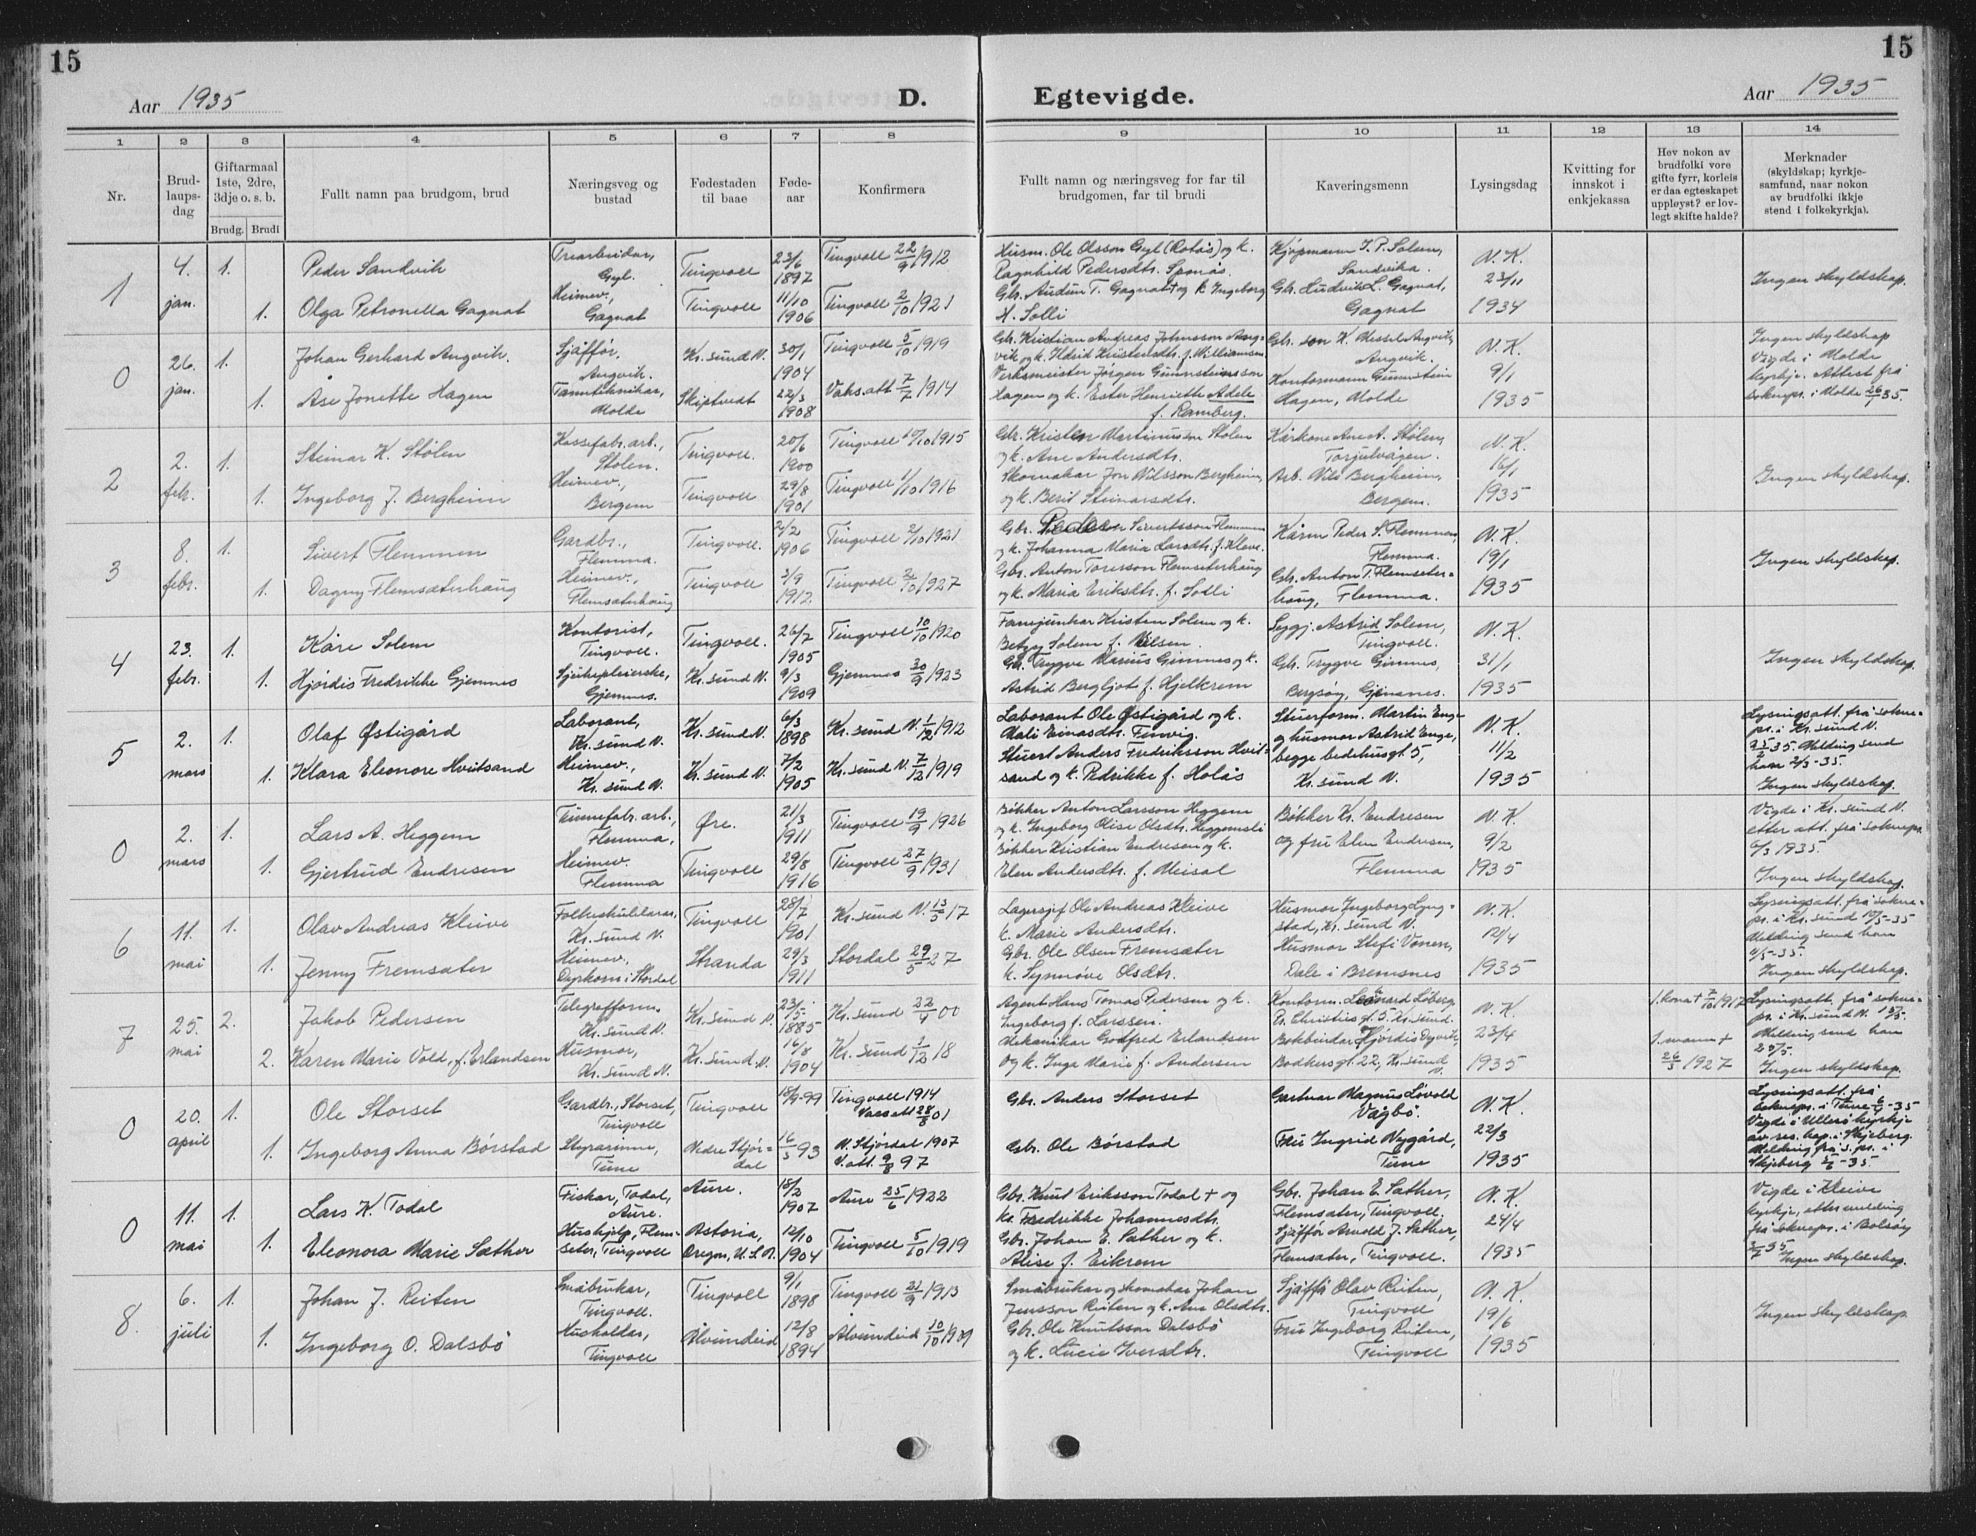 15
15
Aar 1935
D.
Egtevigde.
Aar 1935
1 2 3 4 5 6 7 8 9 10 11 12 13 14
Nr.
Brud-
laups-
dag
Giftarmaal
1ste, 2dre,
3dje o. s. b.
Brudg. Brudi
Fullt namn paa brudgom, brud
Næringsveg og
bustad
Fødestaden
til baae
Føde-
aar
Konfirmera
Fullt namn og næringsveg for far til
brudgomen, far til brudi
Kaveringsmenn
Lysingsdag
Kvitting for
innskot i
enkjekassa
Hev nokon av
brudfolki vore
gifte fyrr, korleis
er daa egteskapet
uppløyst? er lov-
legt skifte halde?
Merknader
(skyldskap; kyrkje-
samfund, naar nokon
av brudfolki ikkje
stend i folkekyrkja).
1
4.
jan.
1.
Peder Sandvik
Trearbeidar,
Gyl.
Tingvoll
23/6
1897
Tingvoll 22/9 1912
Husm. Ole Olsson Gyl (Rotås) og k.
Ragnhild Pedersdtr. Sponås.
Kjøpmann J. P. Solem,
Sandvika.
N. K.
23/11
1934
Ingen skyldskap.
1.
Olga Petronella Gagnat
Heimev.,
Gagnat
Tingvoll
11/10
1906
Tingvoll 2/10 1921
Gbr. Audun T. Gagnat + og k. Ingeborg
H. Solli
Gbr. Ludvik L. Gagnat,
Gagnat
0
26.
jan.
1.
Johan Gerhard Angvik.
Sjåffør,
Angvik.
Kr.sund N.
30/1
1904
Tingvoll 5/10 1919
Gbr. Kristian Andreas Johnsson Ang-
vik og k. Ildrid Kristensdtr. f. Williamsen
Gbr. son K. Messel Angvik,
Angvik.
N. K.
9/1
1935
Ingen skyldskap
Vigde i Molde
kyrkje. Attest frå
sokнepr. i Molde 26/1 35.
1.
Åse Jonette Hagen
Tannteknikar,
Molde
Skiptvedt
22/3
1908
Vaks.att 7/7 1914
Verksmeister Jørgen Gunnsteinsson
Hagen og k. Ester Henriette Adele
f. Ramberg.
Kontormann Gunnstein
Hagen, Molde
2
2.
febr.
1.
Steinar K. Stølen
Kassefabr.arb.,
Stølen.
Tingvoll.
20/6
1900
Tingvoll 10/10 1915
Gbr. Kristen Martinussen Stølen
og k. Ane Andersdtr.
Kårkone Ane A. Stølen,
Torjulvågen.
N. K.
16/1
1935
Ingen skyldskap.
1.
Ingeborg J. Bergheim
Heimev.,
Bergem
Tingvoll
29/8
1901
Tingvoll 1/10 1916
Skomakar Jon Nilsson Bergheim,
og k. Berit Steinarsdtr.
Arb. Nils Bergheim,
Bergem.
3
8.
febr.
1.
Sivert Flemmen
Gardbr.,
Flemma.
Tingvoll.
2/2
1906
Tingvoll 2/10 1921
Gbr. Peder Sivertsson Flemmen
og k. Johanna Maria Larsdtr. f. Kleve.
Kårm. Peder S. Flemmen,
Flemma.
N. K.
19/1
1935
Ingen skyldskap.
1.
Dagny Flemsæterhaug
Heimev.,
Flemsæterhaug
Tingvoll
3/9
1912
Tingvoll 2/10 1927
Gbr. Anton Toresson Flemseterhaug
og k. Maria Eriksdtr. f. Solli
Gbr. Anton T. Flemseter-
haug, Flemma.
4
23.
febr.
1.
Kåre Solem
Kontorist,
Tingvoll.
Tingvoll.
26/7
1905
Tingvoll 10/10 1920
Fanejunkar Kristen Solem og k.
Betzy Solem f. Nilsen.
Sygj. Astrid Solem,
Tingvoll.
N. K.
31/1
1935
Ingen skyldskap.
1.
Hjørdis Fredrikke Gjemnes
Sjukepleierske,
Gjemnes.
Kr.sund N.
9/3
1909
Gjemnes 30/9 1923
Gbr. Tryggve Marius Gimnes og k.
Astrid Bergljot f. Hjelkrem
Gbr. Tryggve Gimnes,
Bergsøy, Gjemnes.
5
2.
mars
1.
Olaf Østigård
Laborant,
Kr.sund N.
Kr.sund N.
6/3
1898
Kr.sund N. 1/12 1912
Laborant Ole Østigård og k.
Mali Einasdtr. Tenvig.
Stuerform. Martin Enge
og husmor Astrid Enge,
begge bedehusgt. 5,
Kr.sund N.
N. K.
11/2
1935
Lysingsatt. frå sokne-
pr. i Kr.sund N.
Melding send
Ingen skyldskap.
1.
Klara Eleonore Hvitsand
Heimev.,
Kr.sund N.
Kr.sund N.
7/2
1905
Kr.sund N. 7/12 1919
Stuert Anders Fredriksson Hvit-
sand og k. Pedrikke f. Holås
0
2.
mars
1.
Lars A. Heggem
Tunnefabr.arb.,
Flemma,
Øre.
21/3
1911
Tingvoll 19/9 1926
Bøkker Anton Larsson Heggem
og k. Ingeborg Olise Olsdtr. Heggemsli
Bøkker Kr. Endresen
og fru Elen Endresen,
Flemma
N. K.
9/2
1935
Vigde i Kr.sund N.
etter att. frå sоknepr.
6/3 1935.
Ingen skyldskap.
1.
Gjertrud Endresen
Heimev.
Flemma
Tingvoll
29/8
1916
Tingvoll 27/9 1931
Bøkker Kristian Endresen og k.
Elen Andersdtr. f. Meisal
6
11.
mai
1.
Olav Andreas Kleive
Folkeskullærar,
Kr.sund N.
Tingvoll
28/7
1901
Kr.sund N. 13/5 17
Lagersjef Ole Andreas Kleive
k. Marie Andersdtr.
Husmor Ingeborg Lyng-
stad, Kr.sund N.
N. K.
12/4
1935
Lysingsatt. frå sokne-
pr. i Kr.sund 10/5-35
Melding send han
Ingen skyldskap.
1.
Jenny Fremsæter
Heimev.,
Dyrkorn i Stordal
Stranda
29/3
1911
Stordal 29/5 27
Gbr. Ole Olsen Fremsæter
k. Synnøve Olsdtr.
Husmor Stefi Vonen,
Dale i Bremsnes
7
25.
mai
2.
Jakob Pedersen
Telegrafform.
Kr.sund N.
Kr.Sund N.
23/5.
1885
Kr.sund 22/4 00
Agent Hans Tomas Pedersen og k.
Ingeborg f. Larssen.
Kontorm. Leonard Løberg,
R. Christiesgt. 5 Kr.sund.
N. K.
23/4
1935
1. kona + 7/10 1917
1. mann +
26/3 1927
Lysingsatt. frå sokne-
pr. i Kr.sund N. 18/5.
Melding send han
28/5.
Ingen skyldskap.
2.
Karen Marie Vold, f. Erlandsen
Husmor,
Kr.sund N.
Kr.sund N.
16/8
1904
Kr.Sund 1/12 18
Mekanikar Godfred Erlandsen
og k. Inga Marie f. Andersen
Bokbindar Hjørdis Dyrvik,
Bødkersgt. 22, Kr.sund N.
0
20.
april
1.
Ole Storset
Gardbr., Storset,
Tingvoll
Tingvoll
18/9-99
Tingvoll 1914
Vaks att 28/8 01
Gbr. Anders Storset
Gartnar Magnus Løvold
Vågbø.
N. K.
22/3
1935
Lysingsatt. frå
soknepr. i Tune 6/4-35
Vigde i Ullerø kyrkje
av res. kap. i Skjeberg.
Melding frå s.pr. i
Skjeberg
1.
Ingeborg Anna Børstad
Styrarinne,
Tune
Nedre Stjør-
dal
16/3 93
N. Stjørdal 1907
V.att. 9/8 97
Gbr. Ole Børstad
Fru Ingrid Nygård,
Tune
0
11.
mai
1.
Lars K. Todal
Fiskar, Todal,
Aure.
Aure.
18/2
1907
Aure 25/6 1922
Gbr. Knut Eriksson Todal + og
k. Fredrikke Johannesdtr.
Gbr. Johan E. Sæther,
Flemsæter, Tingvoll.
N. K.
24/4
1935
Vigde i Kleive
kyrkje, etter melding
frå soknepr. i Bolsøy
Ingen skyldskap.
1.
Eleonora Marie Sæther
Hushjelp, Flem-
seter, Tingvoll
Astoria,
Oregon, U.S.A.
12/10
1904
Tingvoll 5/10 1919
Gbr. Johan E. Sæther og k.
Alise f. Eikrem
Sjåffør Arnold J. Sæther,
Flemsæter, Tingvoll.
8.
6.
juli
1.
Johan J. Reiten
Småbrukar,
Tingvoll.
Tingvoll
9/1
1898
Tingvoll 21/9 1913
Småbrukar og skomakar Johan
Jensson Reiten og k. Ane Olsdtr.
Sjåffø Olav Reiten,
Tingvoll
N. K.
19/6
1935
Ingen skyldskap
1.
Ingeborg O. Dalsbø
Husholder,
Tingvoll
Ålvundeid
12/8
1894
Ålvundeid 10/10 1909
Gbr. Ole Knutsson Dalsbø
og k. Lucie Iversdtr.
Fru Ingeborg Reiten,
Tingvoll